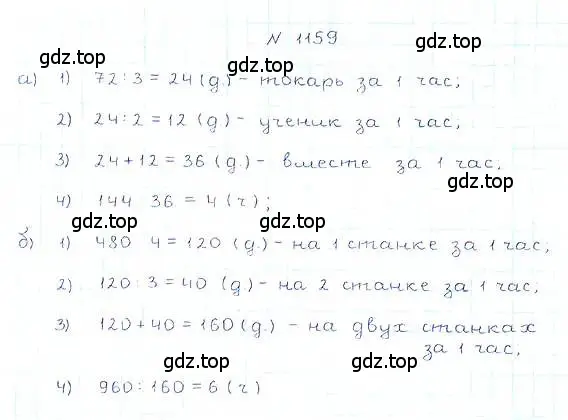 N 1159
gdz.top gdz.top gdz.top
а) 1) 72 : 3 = 24 (д.) - токарь за 1 час;
2) 24 : 2 = 12 (д) - ученик за 1 час;
3) 24 + 12 = 36 (д.) - вместе за 1 час.
gdz.top
4) 144 36 = 4 (ч);
gdz.top gdz.top
б) 1) 480 4 = 120 (д.) - на 1 станке за 1 час;
2) 120 : 3 = 40 (д.) - на 2 станке за 1 час;
3) 120 + 40 = 160 (д.) - на двух станках
за 1 час.
gdz.top gdz.top
4) 960 : 160 = 6 (ч)
gdz.top